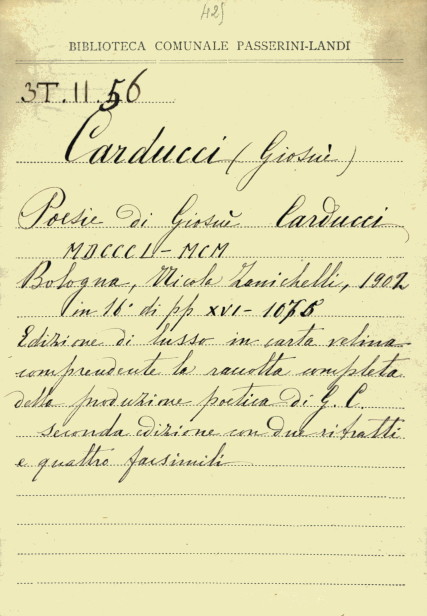 425
BIBLIOTECA COMUNALE PASSERINI-LANDI
3T.II.56
Carducci (Giosuè)
Poesie di Giosuè Carducci
MDCCCL-MCM
Bologna, Nicola Zanichelli, 1902
in 16° di pp XVI-1075
Edizione di lusso in carta velina
comprendente la raccolta completa
della produzione poetica di G. C.
seconda edizione con due ritratti
e quattro facsimili